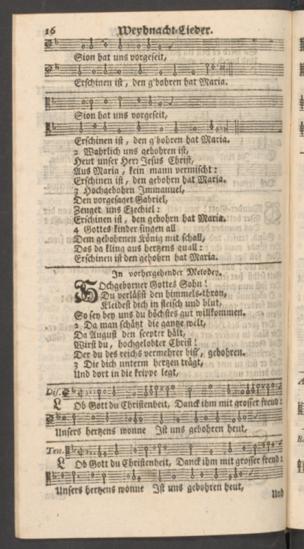 16 Weyhnacht-Lieder.
Sion hat uns vorgeseit,
Erschinen ist, den g'bohren hat Maria.
Sion hat uns vorgeseit,
Erschinen ist, den g'bohren hat Maria.
2 Wahrlich uns gebohren ist,
Heut unser Herr Jesus Christ,
Aus Maria, kein mann vermischt:
Erschinen ist, den gebohren hat Maria.
3 Hochgebohrn Immanuel,
Den vorgesaget Gabriel,
Zeuget uns Ezechiel:
Erschinen ist, den gebohren hat Maria.
4 Gottes kinder singen all
Dem gebohrnen König mit schall,
Das da kling aus hertzens qual:
Erschinen ist den gebohren hat Maria.
In vorhergehender Melodey.
Hochgeborner Gottes Sohn!
Du verläßst den himmels-thron,
Kleidest dich in fleisch und blut,
So sey bey uns du höchstes gut willkommen.
2 Da man schätzt die gantze welt,
Da August den scepter hält,
Wirst du, hochgelobter Christ!
Der du des reichs vermehrer bist, gebohren.
3 Die dich unterm hertzen trägt,
Und dort in die krippe legt,
Dis.
Lob Gott du Christenheit, Danck ihm mit grosser freud:
Unsers hertzens wonne Ist uns gebohren heut,
Ten.
Lob Gott du Christenheit, Danck ihm mit grosser freud:
Unsers hertzens wonne Ist uns gebohren heut,
Und